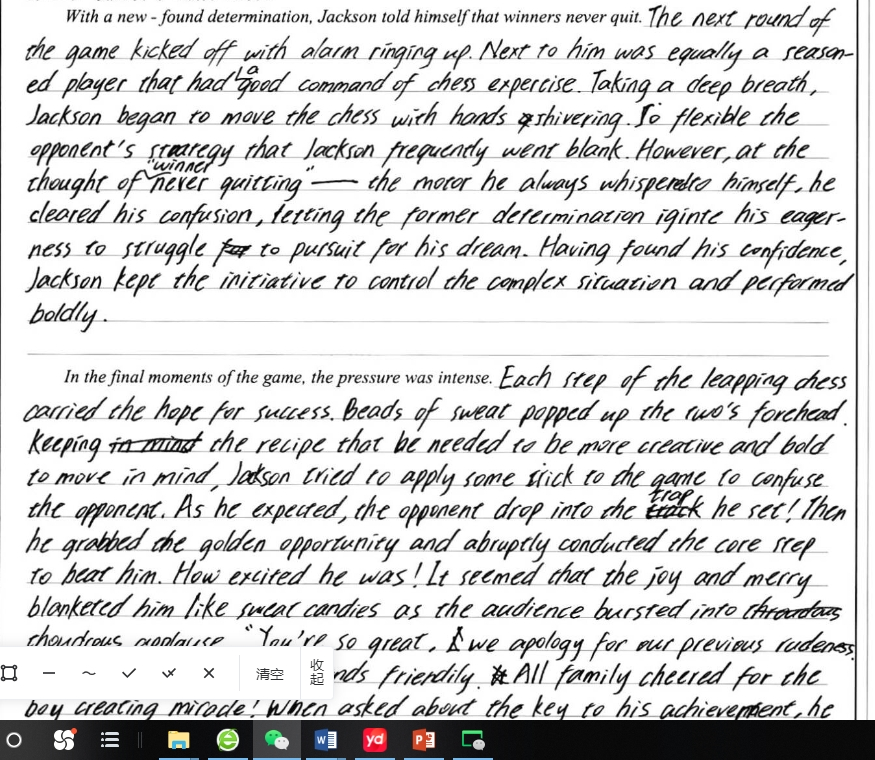 With a new - found determination, Jackson told himself that winners never quit. The next round of
the game kicked off with alarm ringing up. Next to him was equally a season-
ed player that had a good command of chess expercise. Taking a deep breath,
Jackson began to move the chess with hands shivering. So flexible the
opponent's strategy that Jackson frequently went blank. However, at the
thought of "winner never quitting" — the motor he always whispered to himself, he
cleared his confusion, letting the former determination iginte his eager-
ness to struggle to pursuit for his dream. Having found his confidence,
Jackson kept the initiative to control the complex situation and performed
boldly.
In the final moments of the game, the pressure was intense. Each step of the leapping chess
carried the hope for success. Beads of sweat popped up the two's forehead.
Keeping the recipe that he needed to be more creative and bold
to move in mind, Jackson tried to apply some trick to the game to confuse
the opponent. As he expected, the opponent drop into the trap he set! Then
he grabbed the golden opportunity and abruptly conducted the core step
to beat him. How excited he was! It seemed that the joy and merry
blanketed him like sweat candies as the audience bursted into
thoudrous applause. "You're so great, we apology for our previous rudeness.
nds friendily. All family cheered for the
boy creating miracle! When asked about the key to his achievement, he
清空
收起